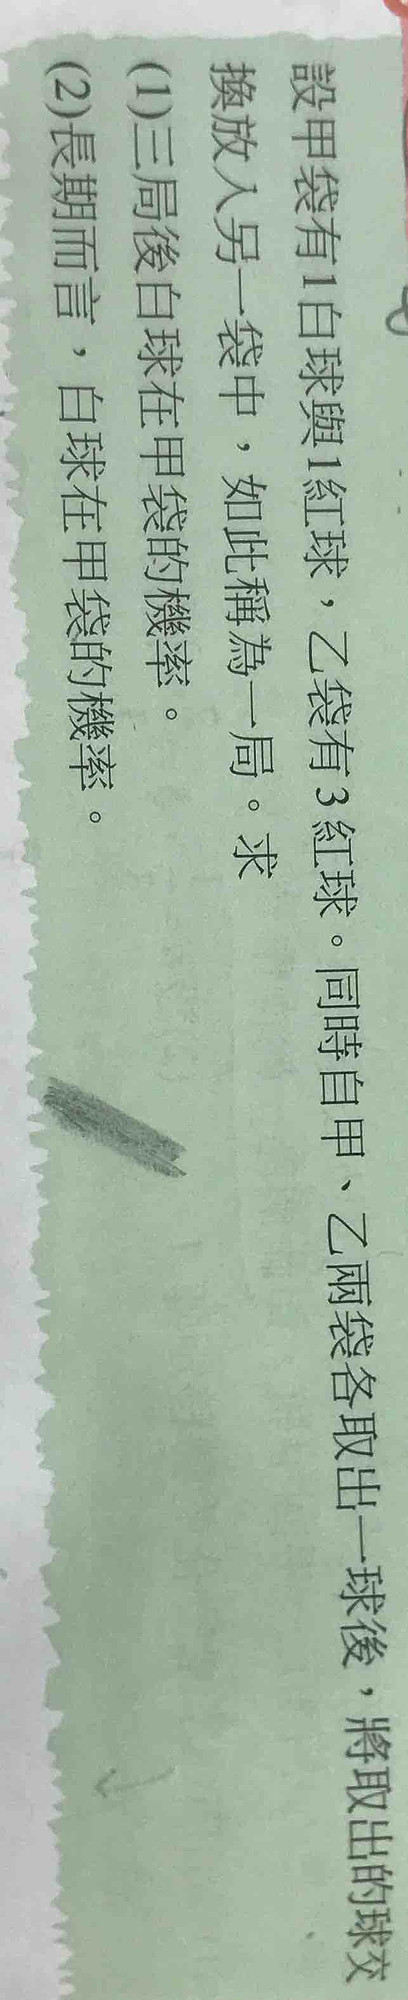 設甲袋有1白球與1紅球，乙袋有3紅球。同時自甲、乙兩袋各取出一球後，將取出的球交
換放入另一袋中，如此稱為一局。求
(1)三局後白球在甲袋的機率。
(2)長期而言，白球在甲袋的機率。